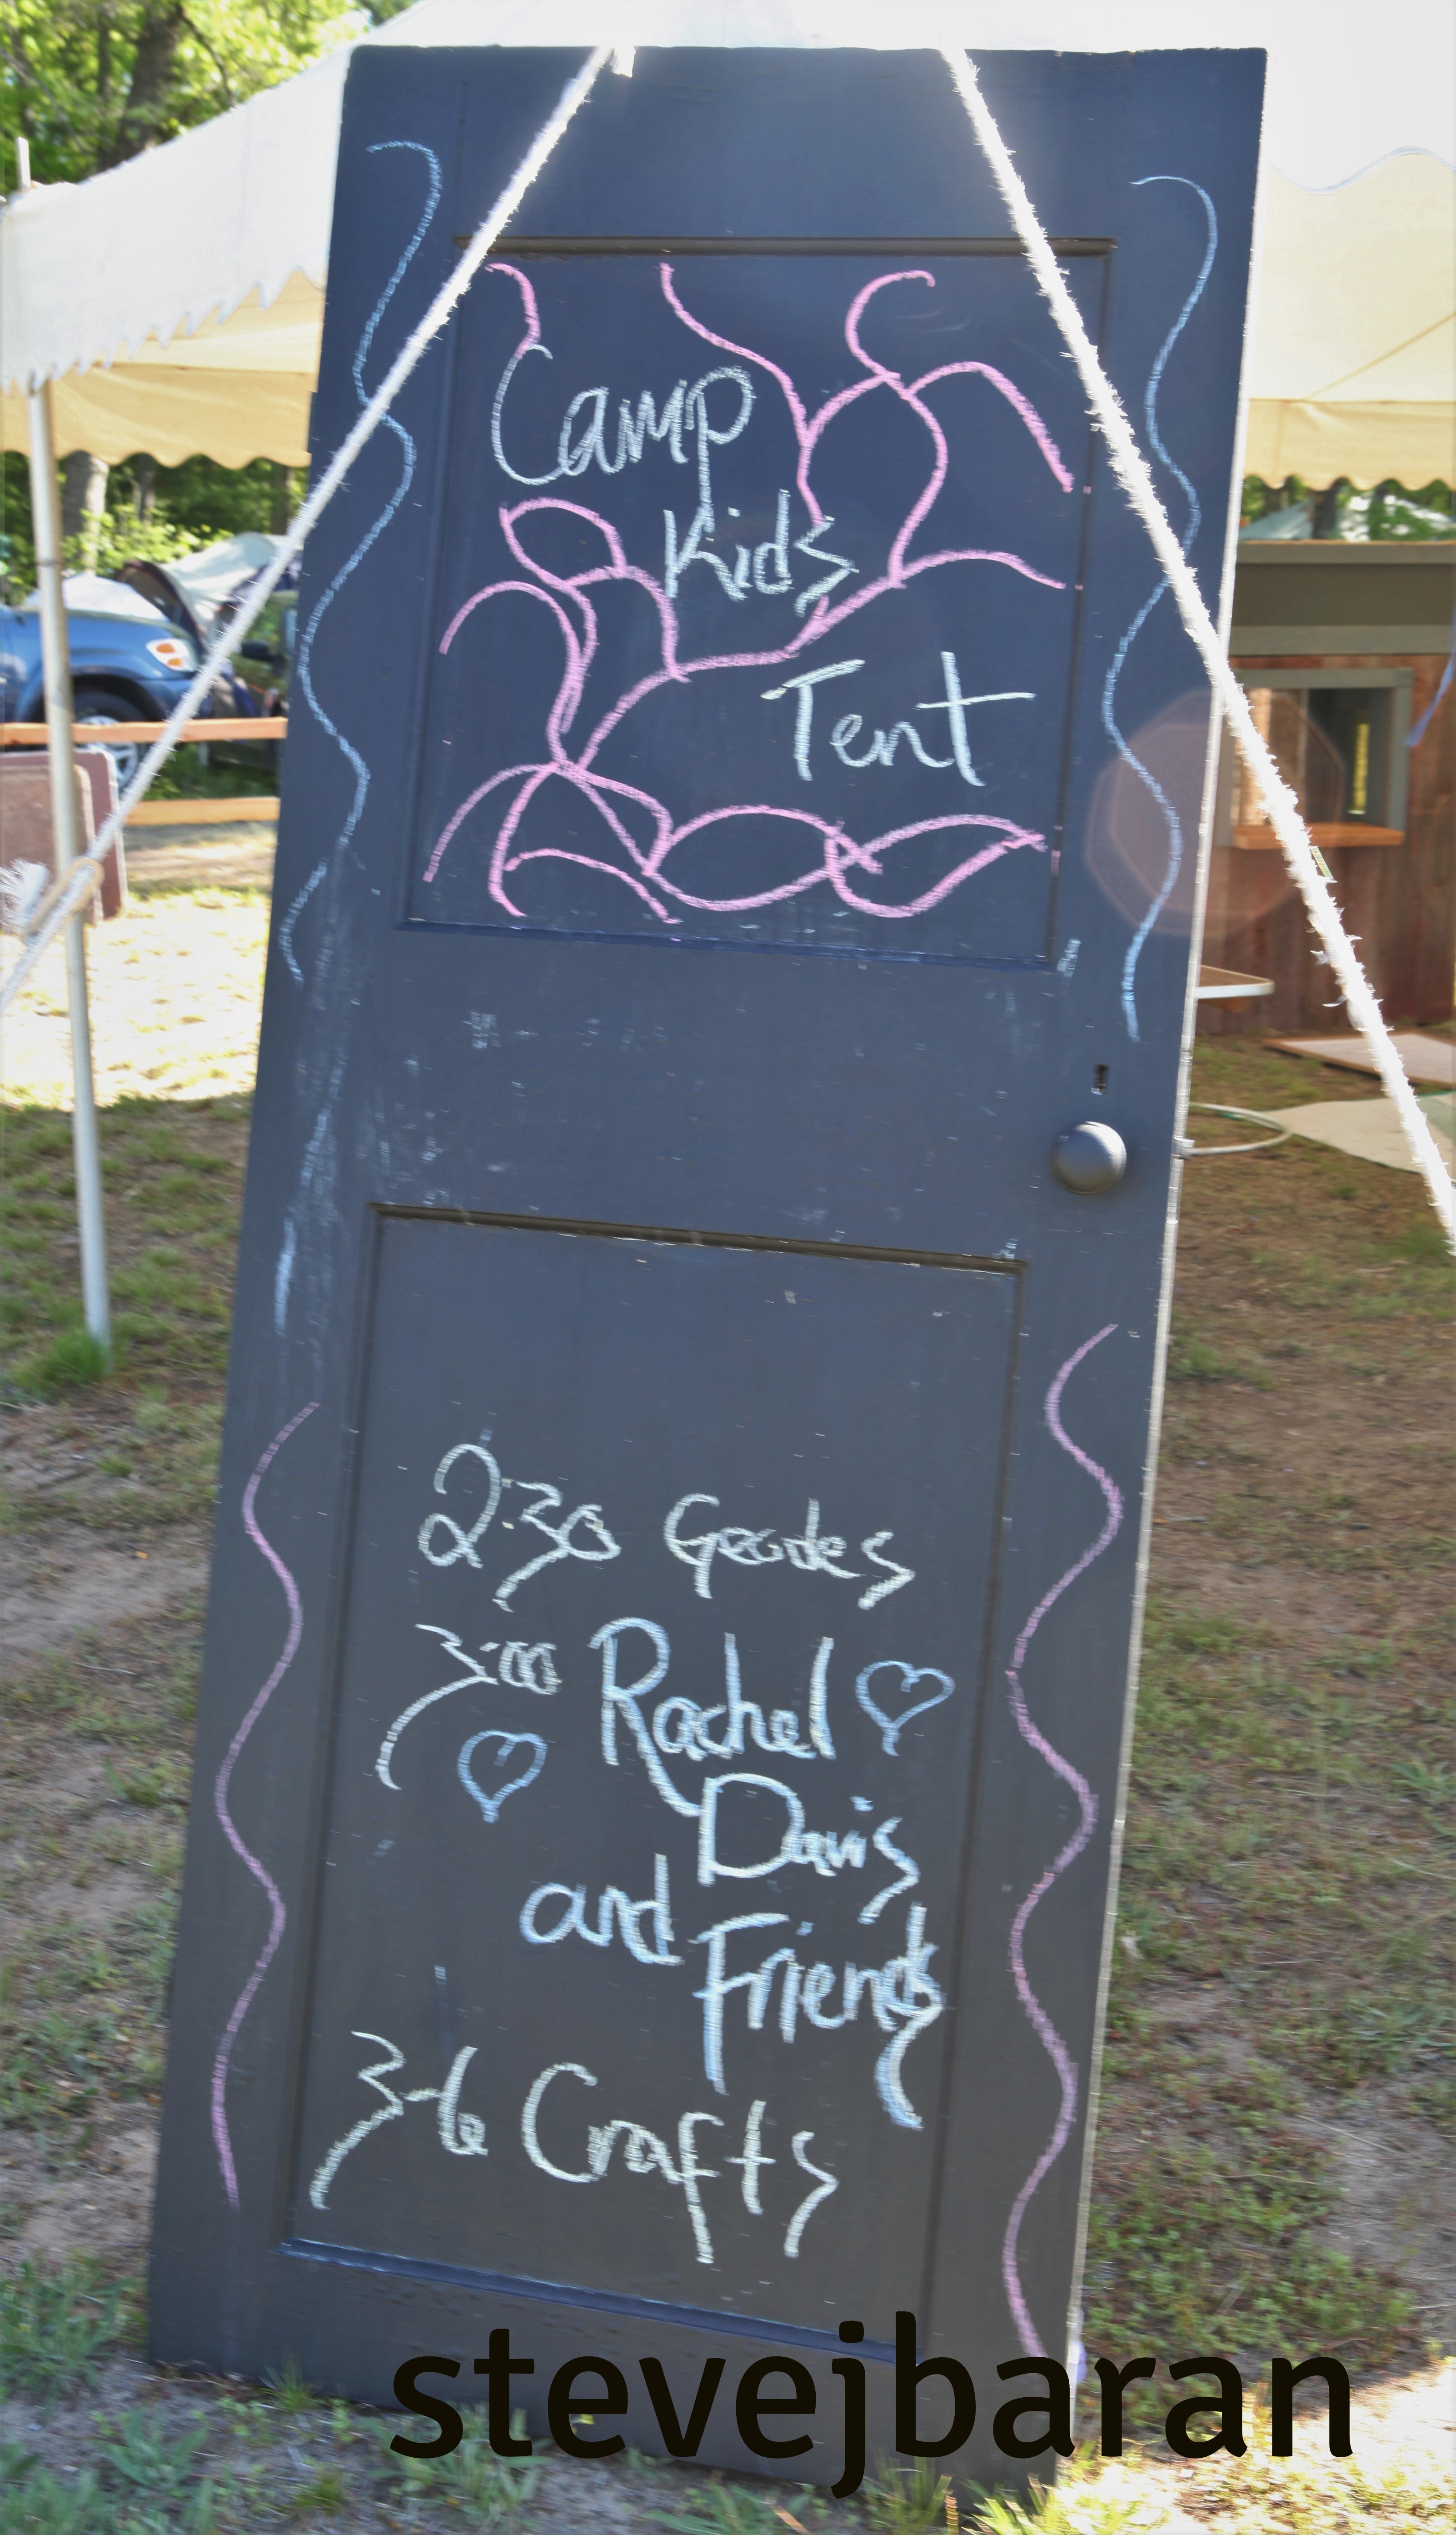 Camp
Kids
Tent
2:30 Geodes
3:00 Rachel
Davis
and
Friends
3-6 Crafts
stevejbaran